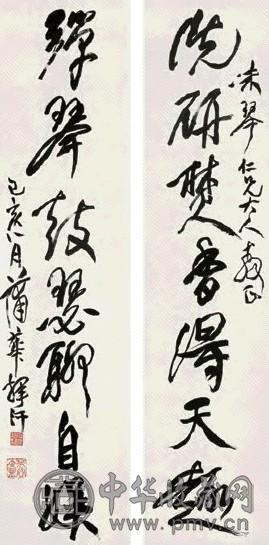 味琴仁兄大人教正
洗研焚香得天趣
彈琴鼓瑟聊自娛
己亥月蒲華揮汗
中华收藏网
www.pmv.cn